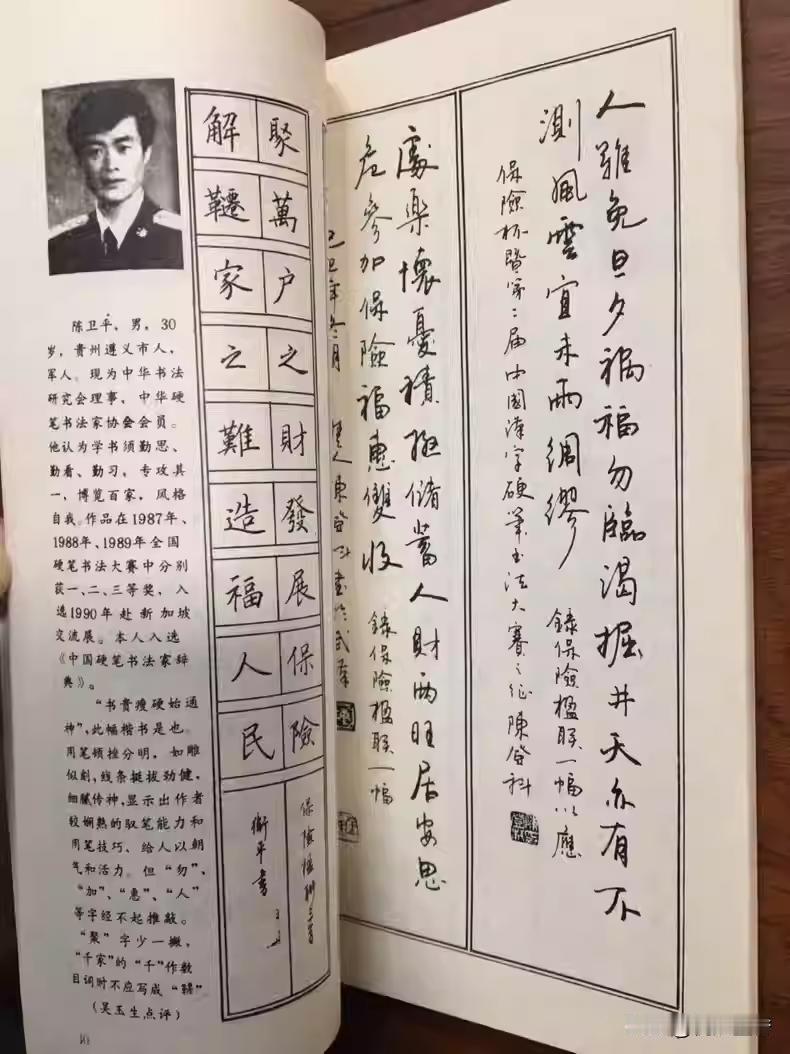 陈卫平，男，30
岁，贵州遵义市人，
军人。现为中华书法
研究会理事，中华硬
笔书法家协会会员。
他认为学书须勤思、
勤看、勤习，专攻其
一，博览百家，风格
自我。作品在1987年、
1988年、1989年全国
硬笔书法大赛中分别
获一、二、三等奖，入
选1990年赴新加坡
交流展。本人入选
《中国硬笔书法家辞
典》。
“书贵瘦硬始通
神”，此幅楷书是也。
用笔顿挫分明，如雕
似刻，线条挺拔劲健，
细腻传神，显示出作者
较娴熟的驭笔能力和
用笔技巧，给人以朝
气和活力。但“勿”、
“加”、“惠”、“人”
等字经不起推敲。
“聚”字少一撇，
“千家”的“千”作数
目词时不应写成“韆”
（吴玉生点评）
聚萬户之財發展保險
解韆家之難造福人民
衛平書
人難免旦夕禍福勿臨渴掘井天亦有不
測風雲宜未雨綢繆
錄保險楹聯一幅以應
保險杯暨第二届中國漢字硬筆書法大賽之征陳登科
處樂懷憂積極儲蓄人財兩旺居安思
危參加保險福惠雙收
錄保險楹聯一幅